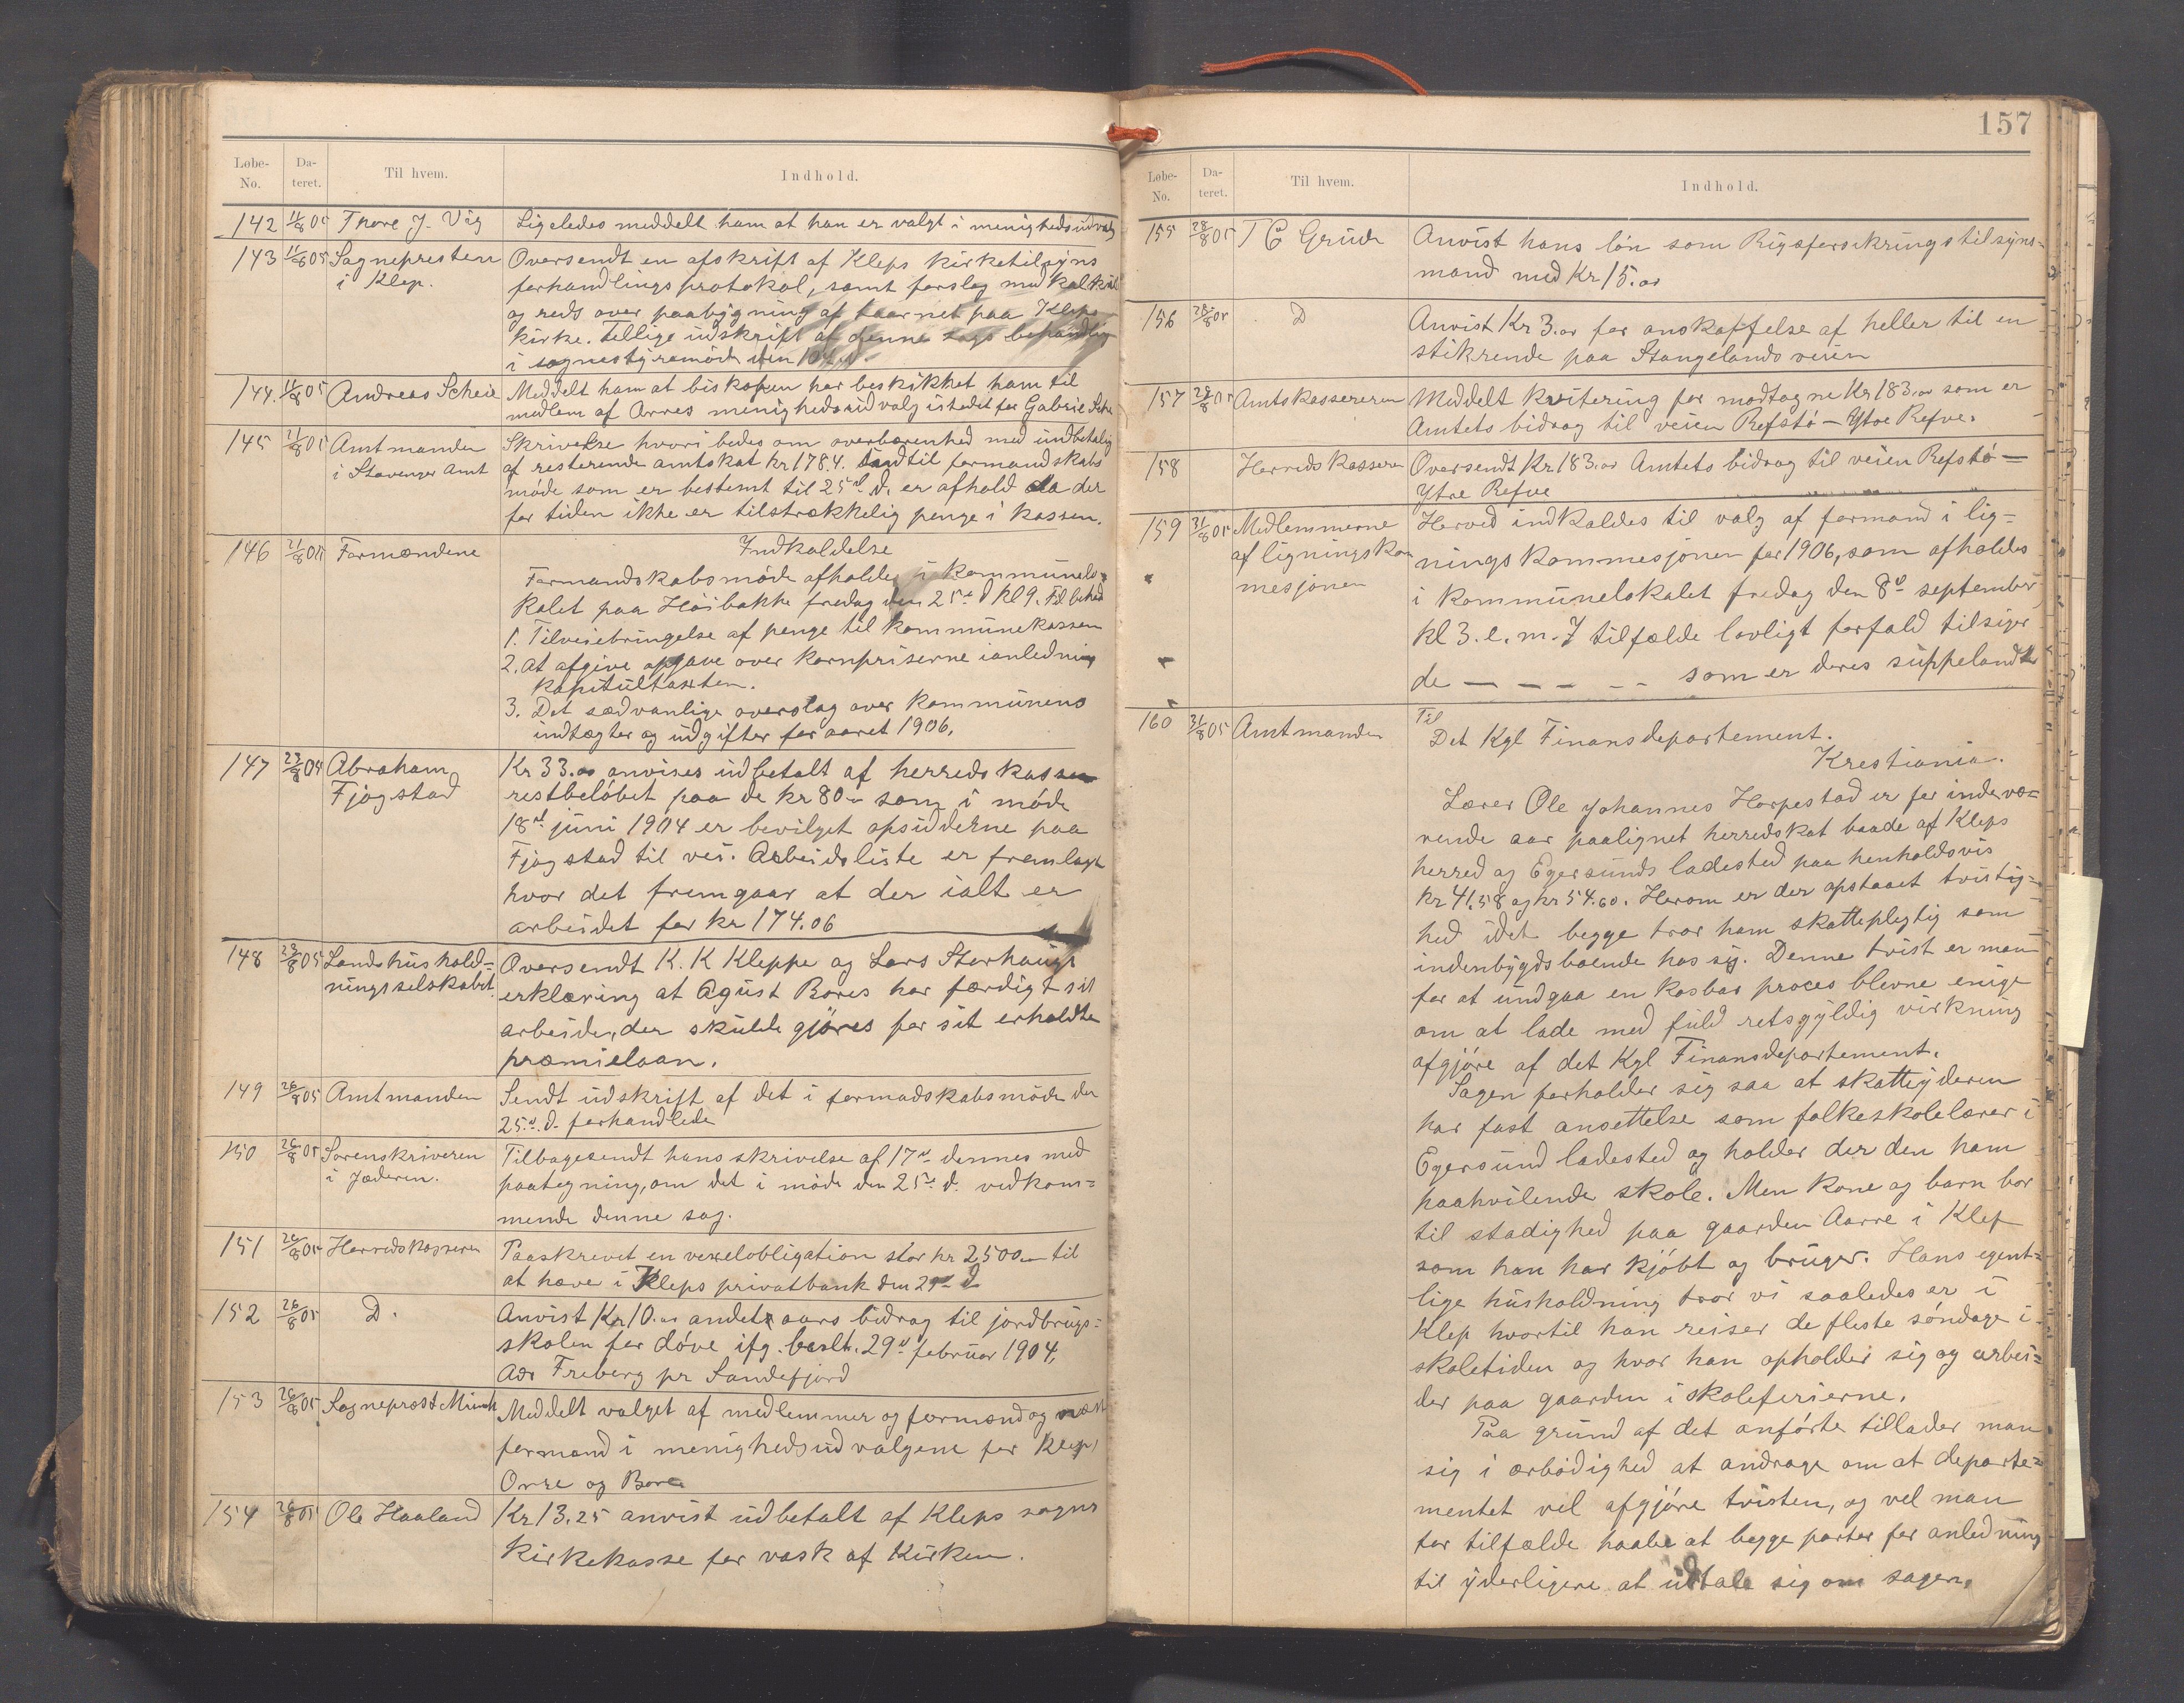 Løbe-No. Da-teret. Til hvem. Indhold.
142 11/8 05 Thore J. Vig Ligeledes meddelt ham at han er valgt i menighedsudvalg
143 11/8 05 Sognepresten Oversendt en afskrift af Kleps kirketilsyns
i Klep. forhandlingsprotokol, samt forslag med kalkül
og reds over paabygning af taarnet paa Kleps
kirke. Tellige udskrift af denne sags behandling
i sognestyremøde den
144. 11/8 05 Andreas Scheie Meddelt ham at biskopen har beskikket ham til
medlem af Orres menighedsudvalg istedet for Gabriel
145 21/8 05 Amtmanden Skrivelse hvori bedes om overbærenhed med indbetalig
i Stavanger Amt af resterende amtskat kr 1784. indtil formandskabs
møde som er bestemt til 25d d. er afhold da der
for tiden ikke er tilstrækkelig penge i kassen.
146 21/8 05 Formændene Indkaldelse
Formandskabsmøde afholdes i kommunelo-
kalet paa Høibakke fredag den 25d d kl 9. Til behad
1. Tilveiebringelse af penge til kommunekassen
2. at afgive opgave over kornpriserne ianledning
kapitultaxten.
3. Det sædvanlige overslag over kommunens
indtægter og udgifter for aaret 1906.
147 23/8 05 Abraham Kr 33.00 anvises udbetalt af herredskassen
Fjogstad restbeløbet paa de kr 80 som i møde
18d juni 1904 er bevilget opsidderne paa
Fjogstad til vei. Arbeidsliste er fremlagt
hvor det fremgaar at der ialt er
arbeidet for kr 174.06
148 23/8 05 Landshushold= Oversendt K. K Kleppe og Lars Storhaugs
ningsselskabet. erklæring at Agust Bores har færdigt sit
arbeide, der skulde gjöres for sit erholdte
præmielaan.
149 26/8 05 Amtmanden Sendt udskrift af det i formadskabsmøde den
25d. d. forhandlede
150 26/8 05 Sorenskriveren Tilbagesendt hans skrivelse af 17d dennes med
i Jæderen. paategning, om det i møde den 25d d. vedkom=
mende denne sag.
151 26/8 05 Herredskasseren Paaskrevet en vexelobligation stor kr 2500 til
at hæve i Kleps privatbank den 29d d
152 26/8 05 D. Anvist Kr 10.00 andet aars bidrag til jordbrugs=
skolen for døve ifg. beslt. 29d februar 1904,
Adr Freberg pr Sandefjord
153 26/8 05 Sogneprost Münch Meddelt valget af medlemmer og formand og næst
formand i menighedsudvalgene for Klep,
Orre og Bore
154 26/8 05 Ole Haaland Kr 13.25 anvist udbetalt af Kleps sogns
kirkekasse for vask af kirken.
157
Løbe-No. Da-teret. Til hvem. Indhold.
155 28/8 05 T E Grude Anvist hans løn som Rigsforsikringstilsyns=
mand med Kr 15.00
156 28/8 05 D Anvist Kr 3.00 for anskaffelse af heller til en
stikrende paa Stangelands veien
157 28/8 05 Amtskassereren Meddelt kvitering for modtagne Kr 183.00 som er
Amtets bidrag til veien Refstø - Ytre Refve.
158 Herredskasseren Oversendt Kr 183.00 Amtets bidrag til veien Refstø -
Ytre Refve
159 31/8 05 Medlemmerne Herved indkaldes til valg af formand i lig=
af ligningskom nings kommesjonen for 1906, som afholdes
mesjonen i kommunelokalet fredag den 8d september
kl 3. e. m. I tilfælde lovligt forfald tilsiger
de - - - - - som er deres suppelandter
160 31/8 05 Amtmanden Til
Det Kgl Finansdepartement.
Krestiania.
Lærer Ole Johannes Horpestad er for indevæ=
rende aar paalignet herredskat baade af Kleps
herred og Egersunds ladested paa henholdsvis
kr 41.58 og kr 54.60. Herom er der opstaaet tvistig=
hed idet begge tror ham skattepligtig som
indenbygdsboende hos sig. Denne tvist er man
for at undgaa en kosbar proces blevne enige
om at lade med fuld retsgyldig virkning
afgjöre af det Kgl Finansdepartement.
Sagen forholder sig saa at skatteyderen
har fast ansettelse som folkeskolelærer i
Egersund ladested og holder der den ham
paahvilende skole. Men kone og barn bor
til stadighed paa gaarden Aarre i Klep
som han har kjöbt og bruger. Hans egent=
lige husholdning tror vi saaledes er i
Klep hvortil han reiser de fleste søndage i
skoletiden og hvor han opholder sig og arbei=
der paa gaarden i skoleferierne.
Paa grund af det anførte tillader man
sig i ærbødighed at andrage om at departe=
mentet vil afgjøre tvisten, og vel man
for tilfælde haabe at begge parter for anledning
til yderligere at udtale sig om sagen.